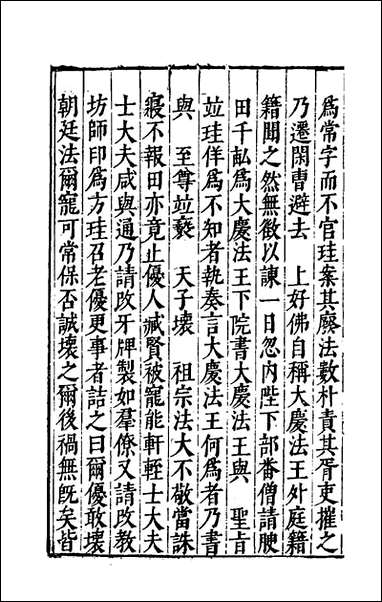 爲常字而不官珪案其廢法數朴責其胥吏摧之
乃遷閑曹避去　上好佛自稱大慶法王外庭籍
籍聞之然無敢以諫一日忽内陛下部番僧請腴
田千畝爲大慶法王下院書大慶法王與　聖旨
竝珪佯爲不知者執奏言大慶法王何爲者乃書
與　至尊竝褻　天子壞　祖宗法大不敬當誅
寢不報田亦竟止優人臧賢被寵能軒輊士大夫
士大夫咸與通乃請改牙牌製如羣僚又請改教
坊師印爲方珪召老優更事者詰之曰爾優敢壞
朝廷法爾寵可常保否誠壞之爾後禍無旣矣皆